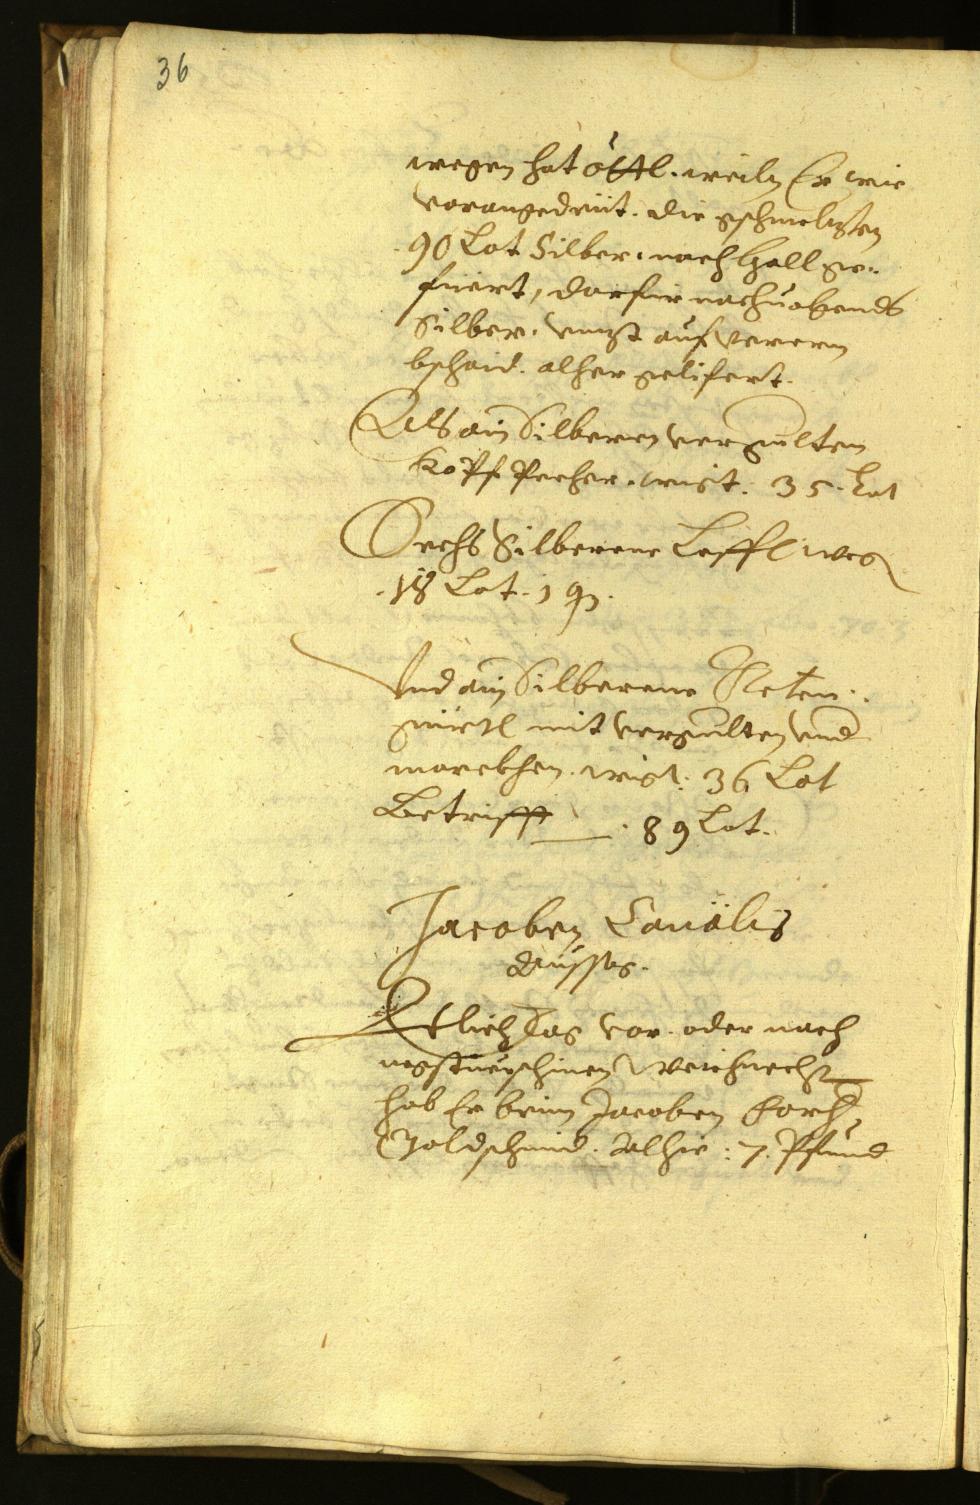 36
wegen hat Öttl. weiln Er wie
vorangedeit. die gschmelzten
90 Lot Silber. nach Hall ge-
füert, darfür nachuolgends
Silber. vnnzt auf verern
bschaid. alher gelifert.
Als ain Silberen vergulten
Kopf Pecher. wigt. 35. Lot
Sechs Silberene Leffl weg
18 Lot. 1 q.
Vnd ain Silberene Keten
gürtl mit vergulten vnd
wigt. 36 Lot
Betrifft 89 Lot.
Jacoben
Aussag.
Etlich Tag vor. oder nach
negstuerschinen Weichnecht
hab Er beim Jacoben
Goldschmid. Alhie: 7. Pfund